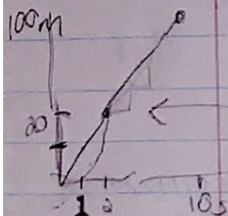 100m
20
1 2 10s